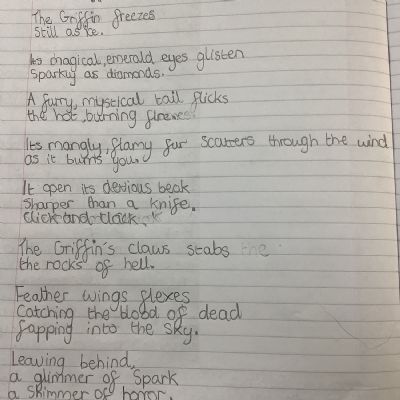 The Griffin freezes
Still as ice.
Its magical, emerald eyes glisten
Sparkly as diamonds.
A furry, mystical tail flicks
the hot, burning
Its mangly, flamy fur scatters through the wind
as it burns you.
It open its devious beak
Sharper than a knife.
Click and clack.
The Griffin's claws stabs the
the rocks of hell.
Feather wings flexes
Catching the blood of dead
fapping into the sky.
Leaving behind,
a glimmer of Spark
a Shimmer of horror.